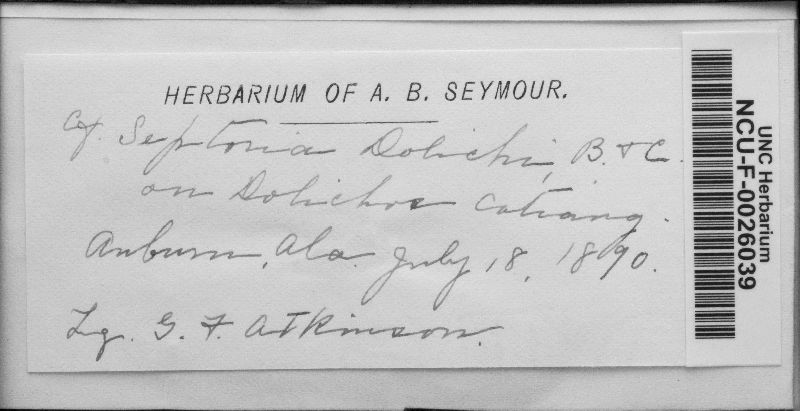 HERBARIUM OF A. B. SEYMOUR.
cf. Septoria Dolichi, B. & C.
on Dolichos Catiang.
Auburn, Ala. July 18, 1890.
Lg. G. F. Atkinson.
UNC Herbarium
NCU-F-0026039